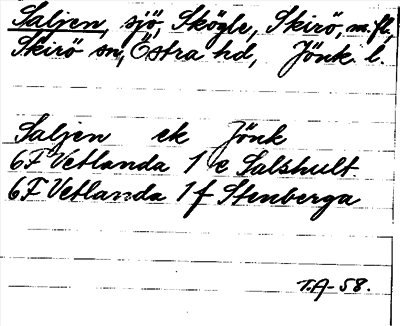 Saljen, sjö, Skögle, Skirö, m.fl.,
Skirö sn, Östra hd, Jönk. l.
Saljen ek Jönk
6F Vetlanda 1 e Salshult
6F Vetlanda 1 f Stenberga
T.A-58.